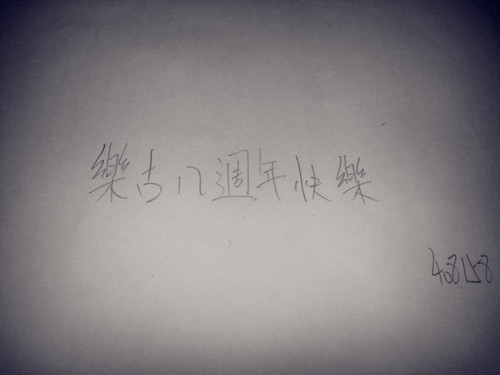 樂古八週年快樂